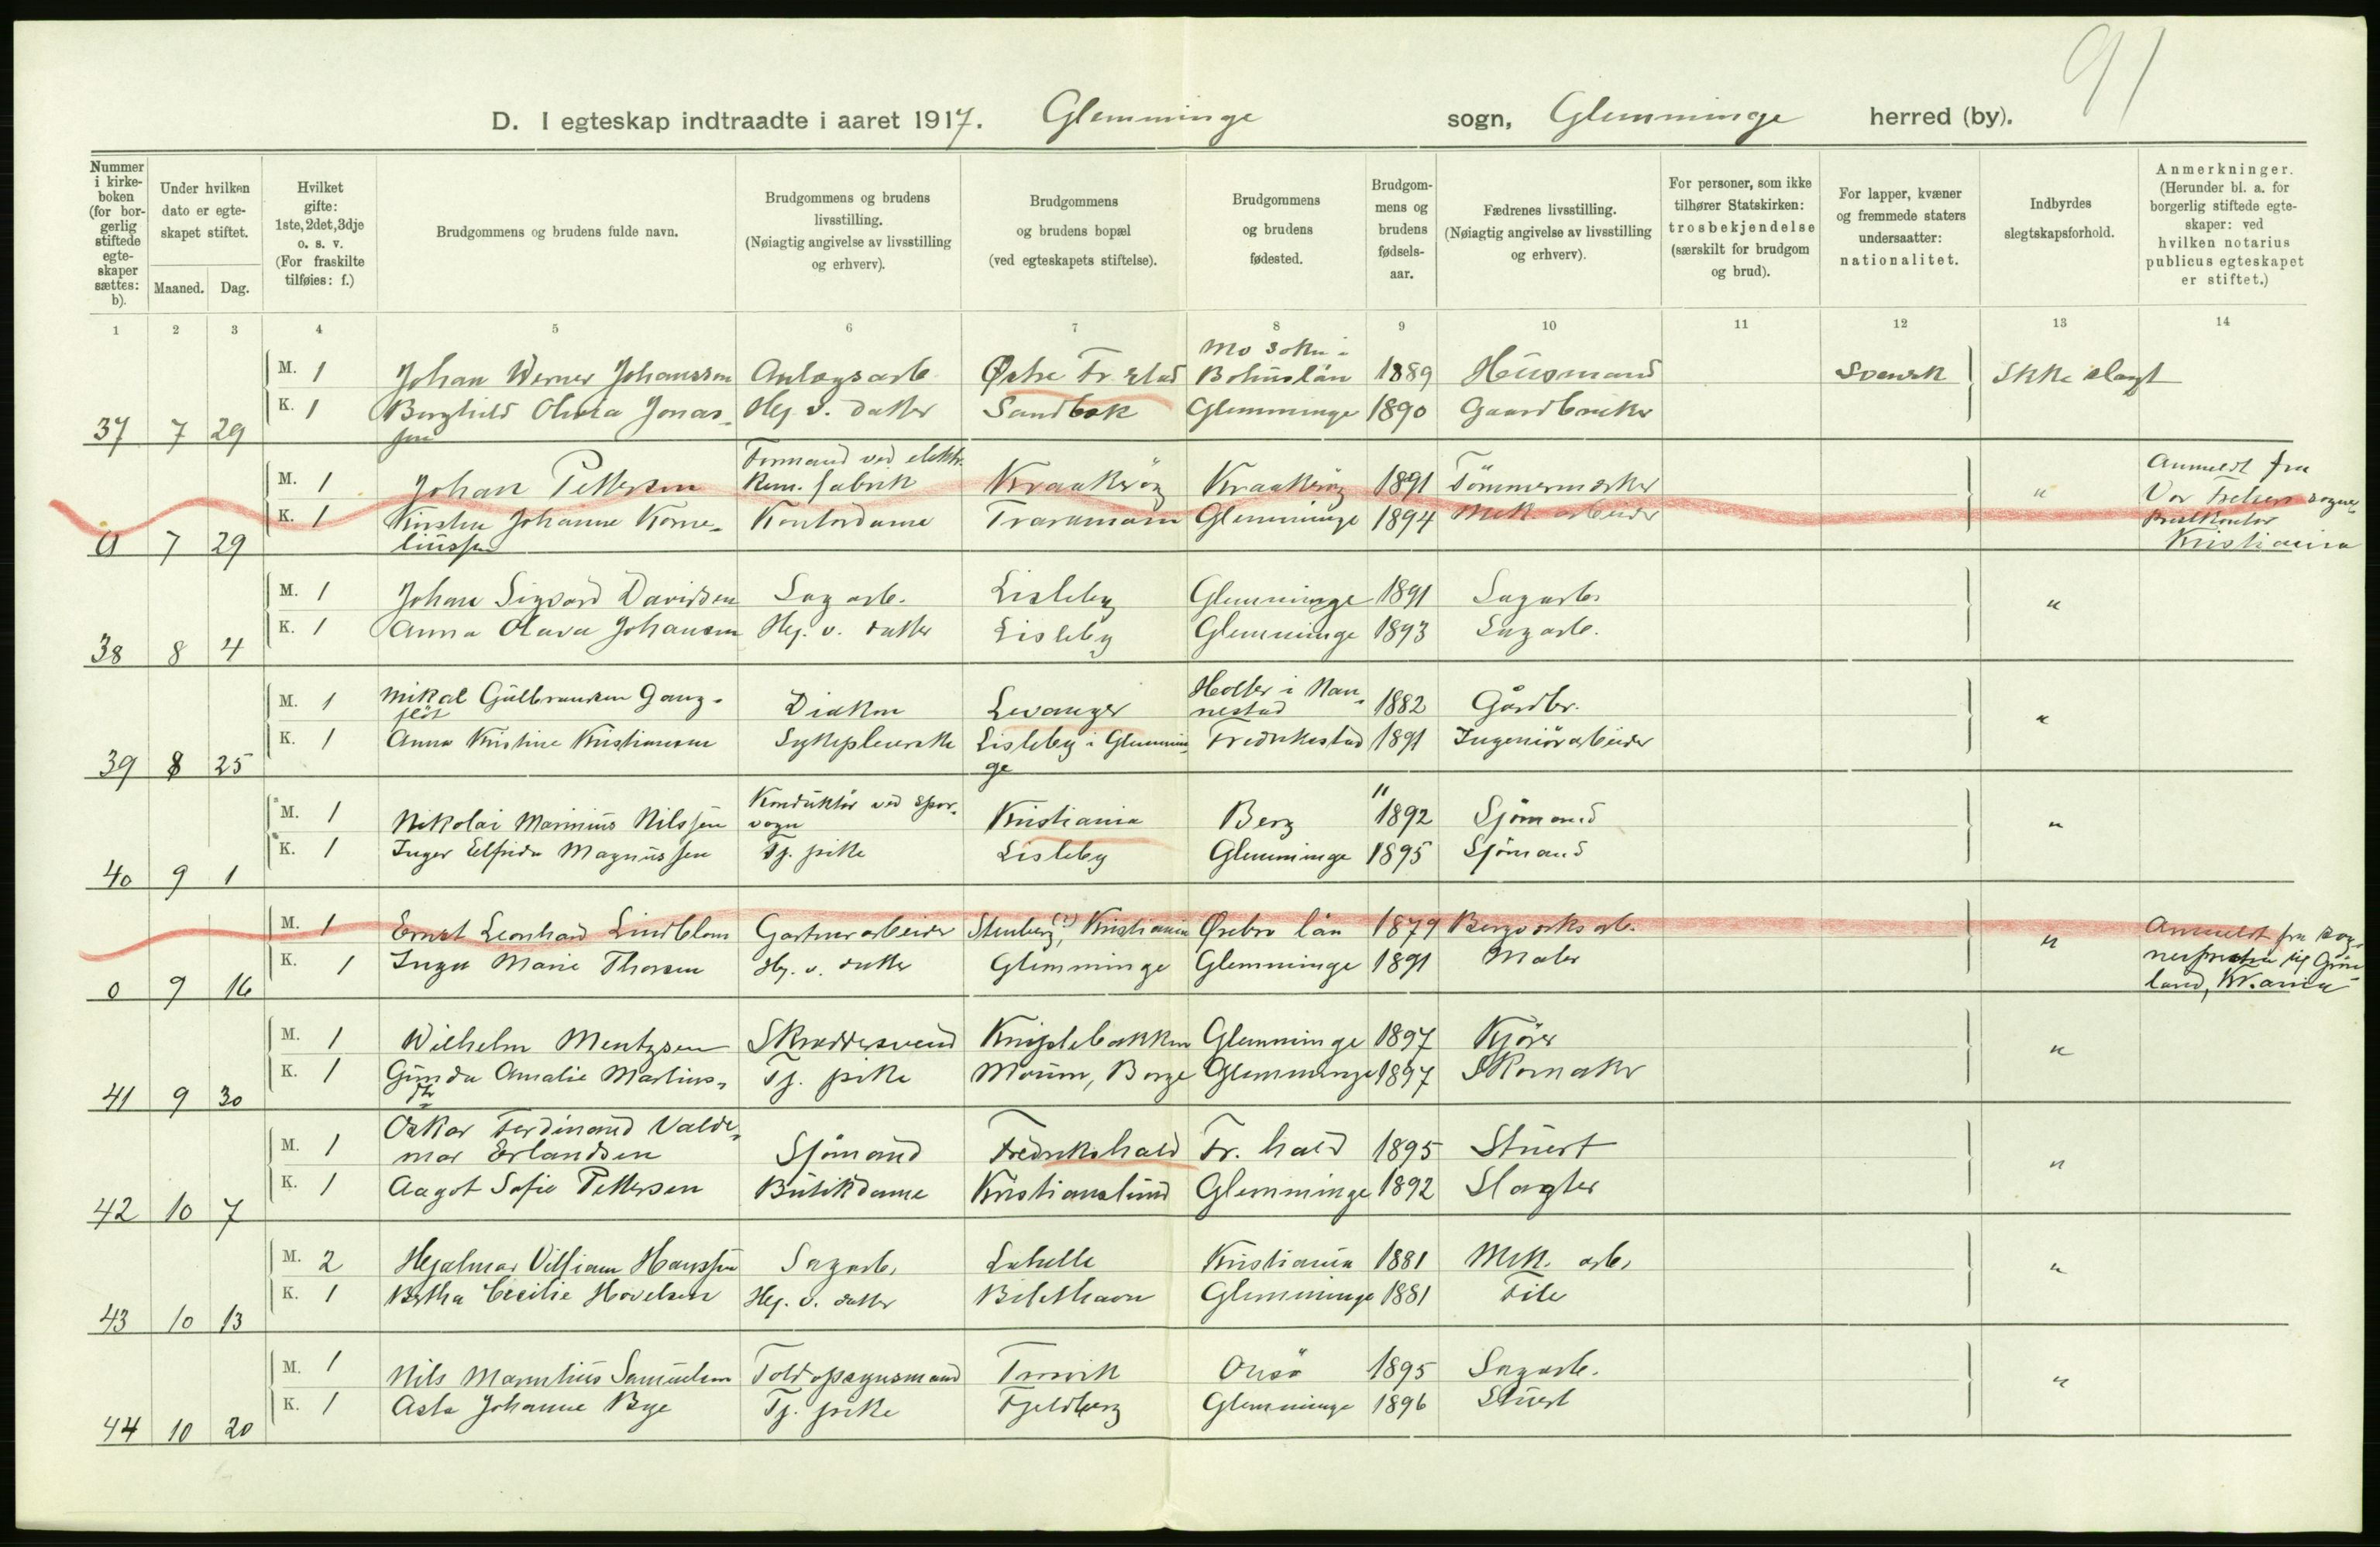 91
D. I egteskap indtraadte i aaret 1917. Glemminge sogn, Glemminge herred (by).
Nummer i kirke-boken (for bor-gerlig stiftede egte-skaper sættes: b).
Under hvilken dato er egte-skapet stiftet.
Maaned. Dag.
Hvilket gifte: 1ste, 2det, 3dje o. s. v. (For fraskilte tilføies: f.)
Brudgommens og brudens fulde navn.
Brudgommens og brudens livsstilling. (Nøiagtig angivelse av livsstilling og erhverv).
Brudgommens og brudens bopæl (ved egteskapets stiftelse).
Brudgommens og brudens fødested.
Brudgom-mens og brudens fødsels-aar.
Fædrenes livsstilling. (Nøiagtig angivelse av livsstilling og erhverv).
For personer, som ikke tilhører Statskirken: trosbekjendelse (særskilt for brudgom og brud).
For lapper, kvæner og fremmede staters undersaatter: nationalitet.
Indbyrdes slegtskapsforhold.
Anmerkninger. (Herunder bl. a. for borgerlig stiftede egte-skaper: ved hvilken notarius publicus egteskapet er stiftet.)
1 2 3 4 5 6 7 8 9 10 11 12 13 14
Mo Sokn i
M. 1 Johan Werner Johansson Anlægsarb. Østre Fr.stad Bohuslän 1889 Husmand Svensk Ikke slegt
K. 1 Borghild Olivia Jonas- Hj. v. datter Sandbæk Glemminge 1890 Gaardbruker
37 7 29 sen
Formand ved elektr.
M. 1 Johan Pettersen kem. fabrik Kraakerøy Kraakerøy 1891 Tömmermerker " Anmeldt fra
K. 1 Kirsten Johanne Korne- Kontordame Glemminge 1894 Mek. arbeider Vor Frelsers sogne-
prestkontor
0 7 29 liussen Kristiania
M. 1 Johan Sigvard Davidsen Sagarb. Lisleby Glemminge 1891 Sagarb. "
K. 1 Anna Olava Johansen Hj. v. datter Lisleby Glemminge 1893 Sagarb.
38 8 4
Mikal Gulbrandsen Gang- Holter i Nan-
M. 1 Diakon Levanger nestad 1882 Gårdbr. "
K. 1 Anna Kristine Kristiansen Sykepleierske Lisleby i Glemmin- Fredrikstad 1891 Ingeniörarbeider
39 8 25 ge
Konduktör ved spor-
M. 1 Nikolai Marinius Nilssen vogn Kristiania Berg " 1892 Sjömand "
K. 1 Inger Elfrida Magnussen Tj. pike Lisleby Glemminge 1895 Sjömand
40 9 1
M. 1 Ernst Leonhard Lindblom Gartnerarbeider Stenberg (?), Kristiania Ørebro län 1879 Bergverksarb. " Anmeldt fra sog-
K. 1 Inga Marie Thorsen Hj. v. datter Glemminge Glemminge 1891 Maler nepresten til Grön-
0 9 16 land, Kr.ania
M. 1 Wilhelm Mentzsen Skræddersvend Kniplebakken Glemminge 1897 Kjörer "
K. 1 Gunda Amalie Martins- Tj. pike Moum, Borge Glemminge 1897 Skomaker
41 9 30
Oskar Ferdinand Valde-
M. 1 mar Erlandsen Sjömand Fredrikshald Fr. hald 1895 Stuert "
K. 1 Aagot Sofie Pettersen Butikdame Kristianslund Glemminge 1892 Slagter
42 10 7
M. 2 Hjalmar Villiam Hanssen Sagarb. Labelle Kristiania 1881 Mek. arb. "
K. 1 Bertha Cecilie Hovelsen Hj. v. datter Glemminge 1881
43 10 13
M. 1 Nils Samuelsen Toldopsynsmand Onsö 1895 Sagarb. "
K. 1 Asta Johanne Bye Tj. pike Fjeldberg Glemminge 1896 Stuert
44 10 20